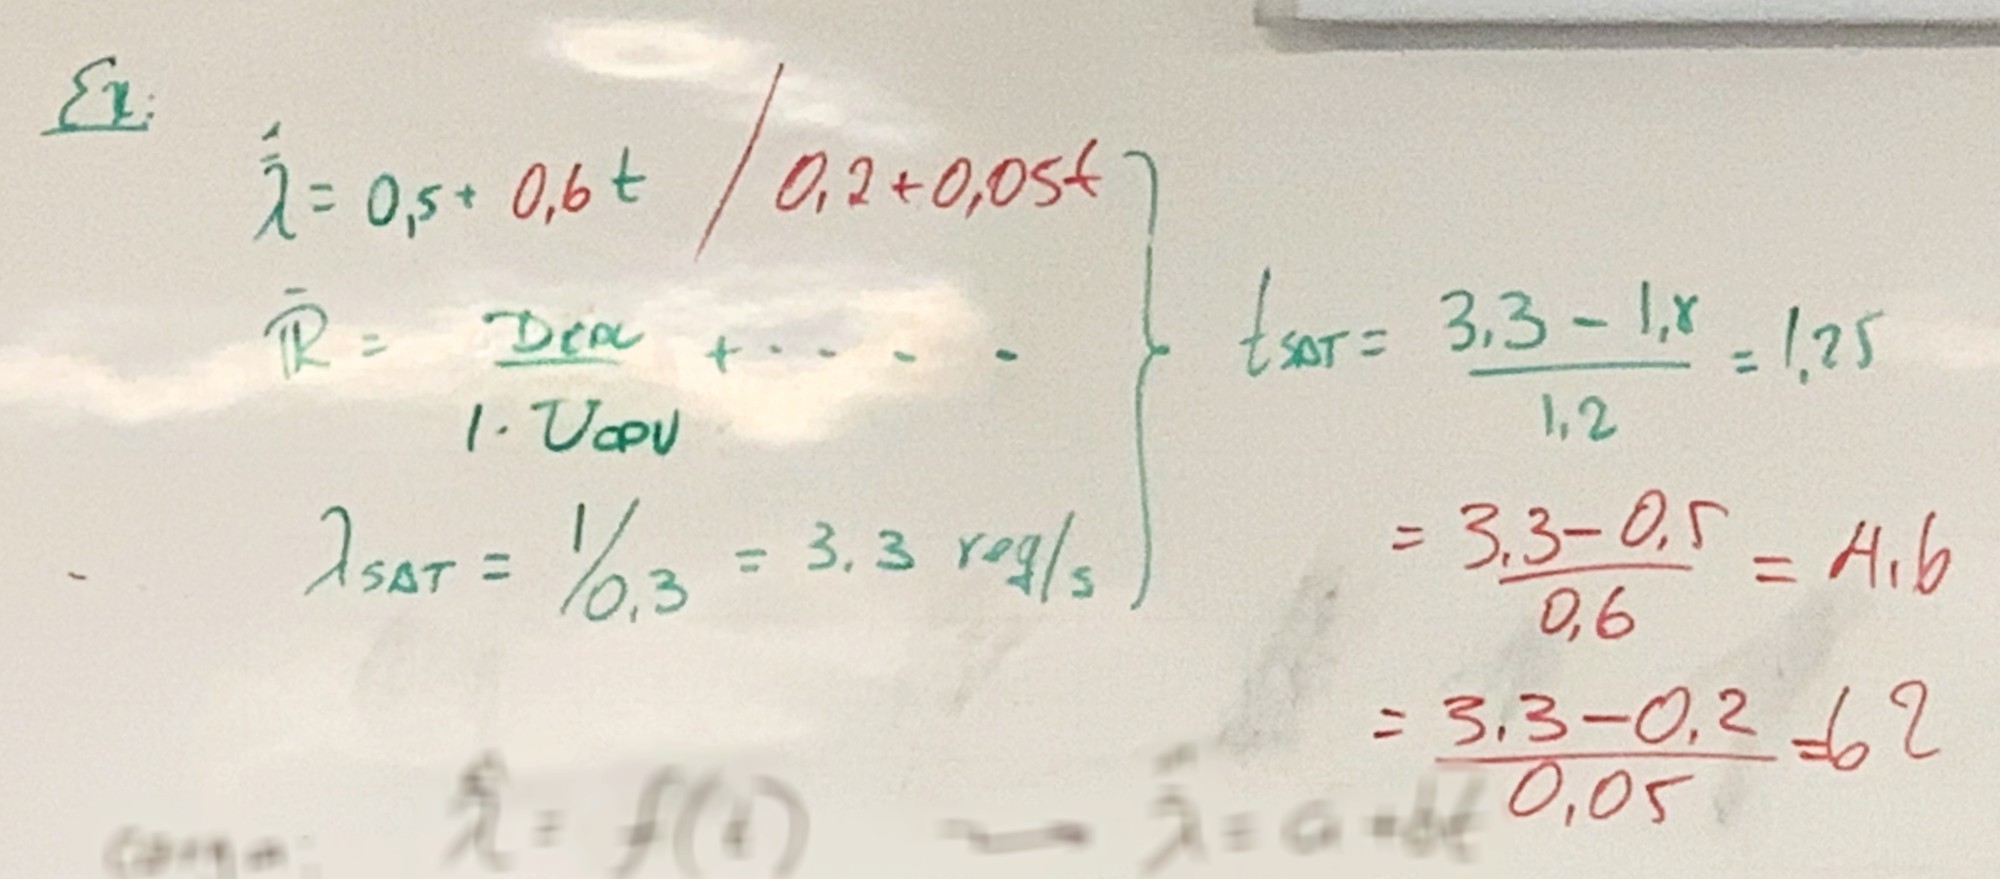 Ex:
λ̂ = 0,5 + 0,6 t / 0,2 + 0,05t
R̄ = D_CPU / 1 - U_CPU + . . . .
λSAT = 1/0,3 = 3.3 reg/s
tSAT = 3.3 - 1,8 / 1,2 = 1,25
= 3.3 - 0,5 / 0,6 = 4.6
= 3.3 - 0.2 / 0,05 = 62
λ̂ = f(t)